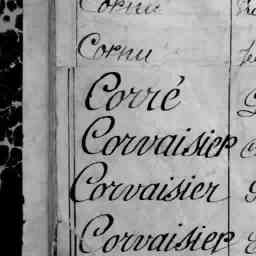 Cornu
Cornu
Corré
Corvaisier
Corvaisier
Corvaisier